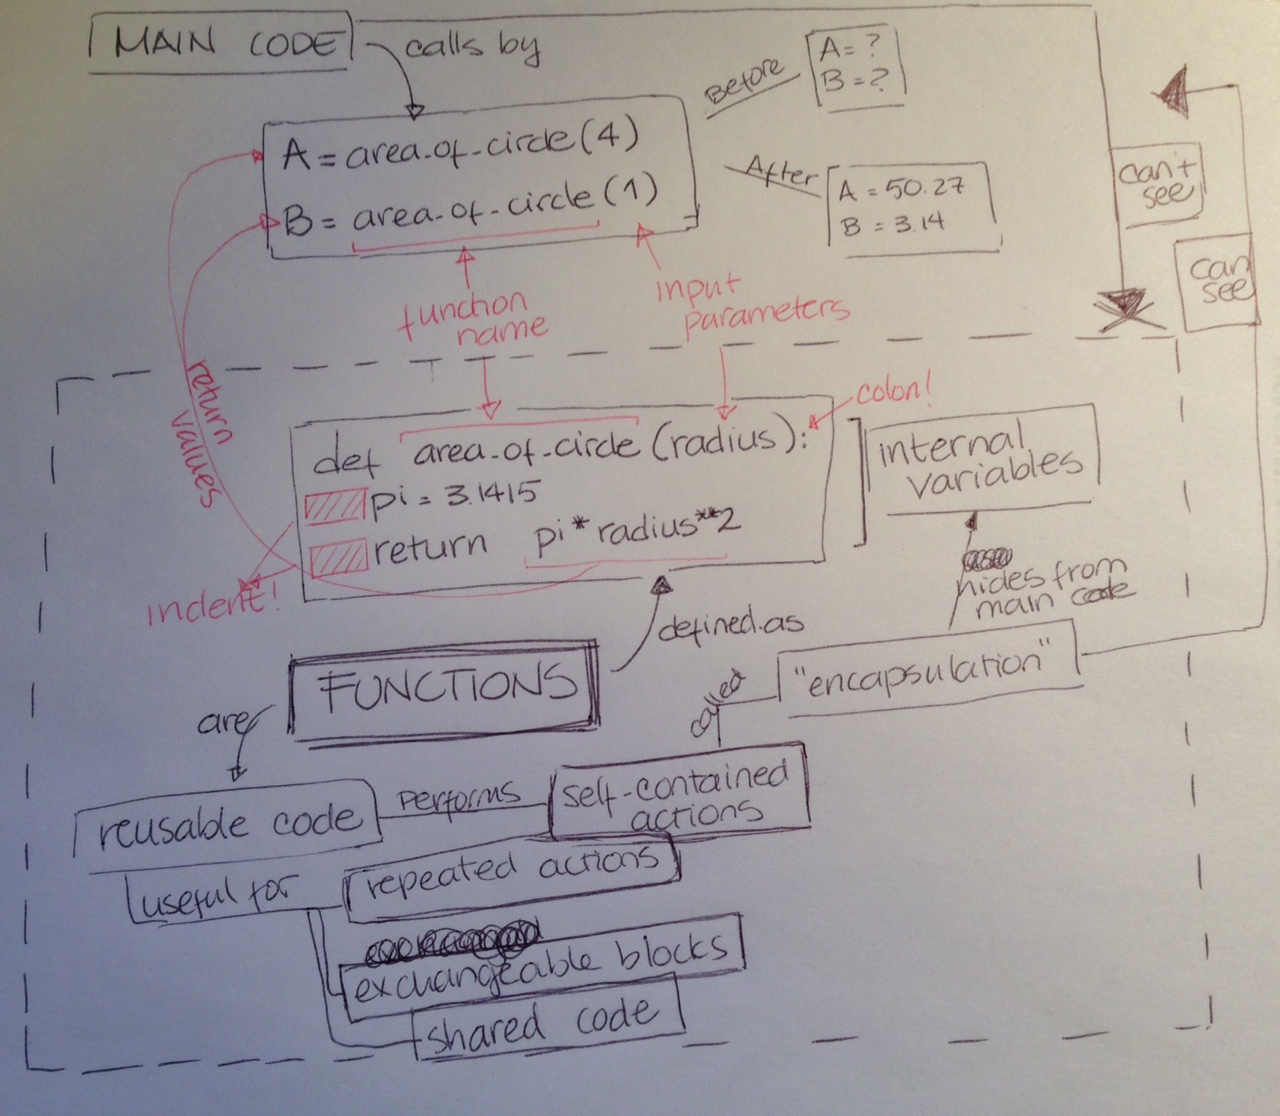 MAIN CODE
calls by
Before
A = ?
B = ?
A = area_of_circle(4)
B = area_of_circle(1)
After
A = 50.27
B = 3.14
can't
see
can
see
function
name
input
parameters
return
values
colon!
def area_of_circle (radius):
pi = 3.1415
return pi * radius**2
indent!
internal
variables
hides from
main code
defined as
FUNCTIONS
"encapsulation"
called
are
reusable code
performs
self-contained
actions
useful for
repeated actions
exchangeable blocks
shared code